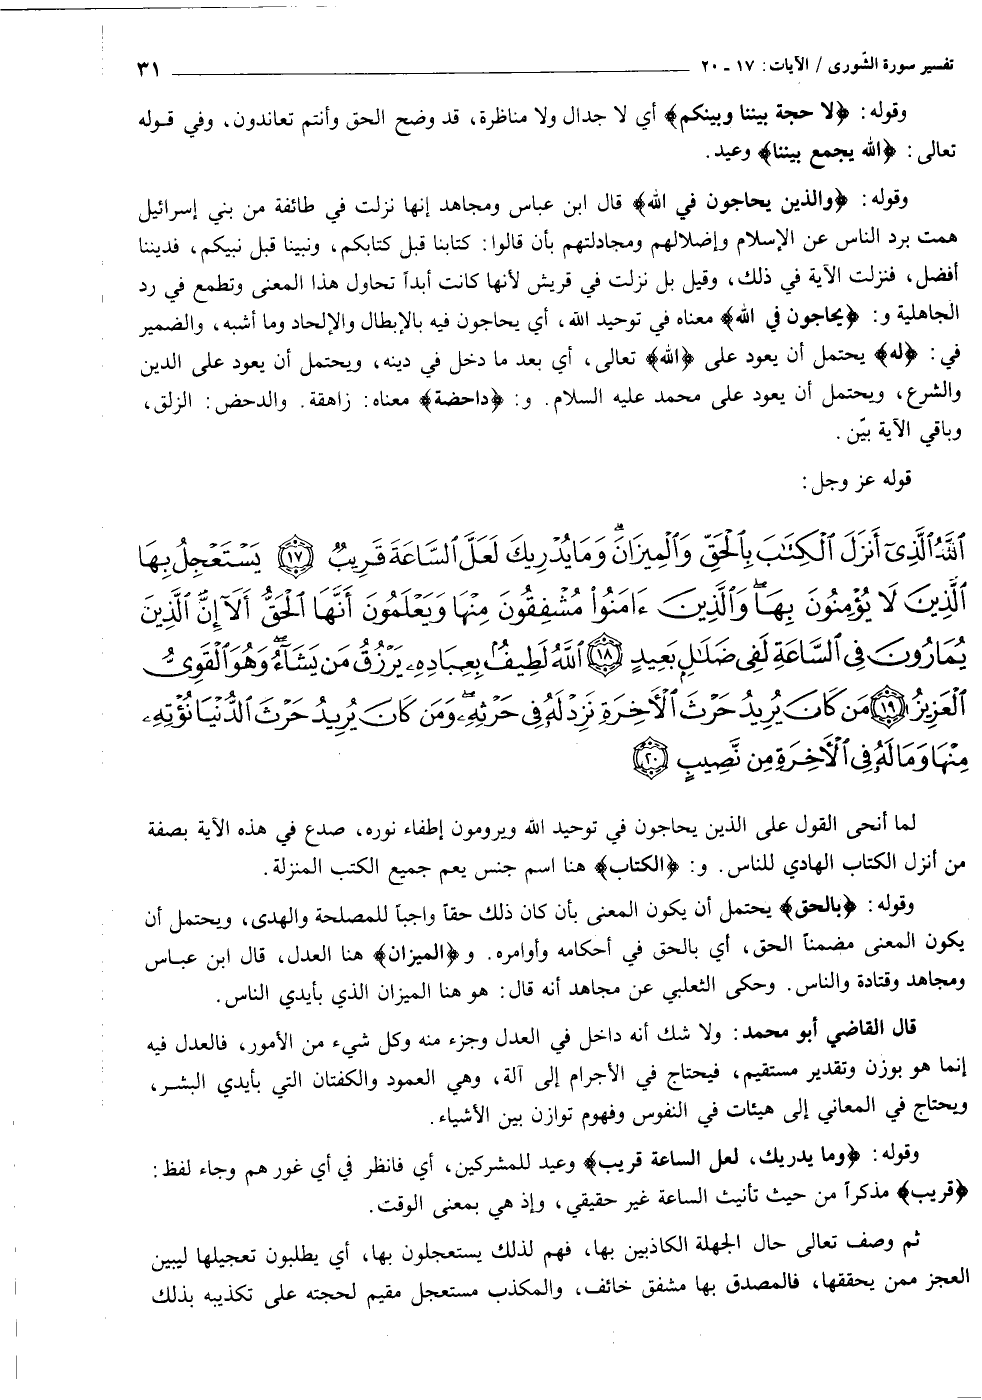 تفسير سورة الشّورى / الآيات: ١٧ ـ ٢٠ ٣١
وقوله: ﴿لا حجة بيننا وبينكم﴾ أي لا جدال ولا مناظرة، قد وضح الحق وأنتم تعاندون، وفي قوله
تعالى: ﴿الله يجمع بيننا﴾ وعيد.
وقوله: ﴿والذين يحاجون في الله﴾ قال ابن عباس ومجاهد إنها نزلت في طائفة من بني إسرائيل
همت برد الناس عن الإسلام وإضلالهم ومجادلتهم بأن قالوا: كتابنا قبل كتابكم، ونبينا قبل نبيكم، فديننا
أفضل، فنزلت الآية في ذلك، وقيل بل نزلت في قريش لأنها كانت أبداً تحاول هذا المعنى وتطمع في رد
الجاهلية و: ﴿يحاجون في الله﴾ معناه في توحيد الله، أي يحاجون فيه بالإبطال والإلحاد وما أشبه، والضمير
في: ﴿له﴾ يحتمل أن يعود على ﴿الله﴾ تعالى، أي بعد ما دخل في دينه، ويحتمل أن يعود على الدين
والشرع، ويحتمل أن يعود على محمد عليه السلام. و: ﴿داحضة﴾ معناه: زاهقة. والدحض: الزلق،
وباقي الآية بيّن.
قوله عز وجل:
ٱللَّهُ ٱلَّذِىٓ أَنزَلَ ٱلْكِتَٰبَ بِٱلْحَقِّ وَٱلْمِيزَانَۗ وَمَا يُدْرِيكَ لَعَلَّ ٱلسَّاعَةَ قَرِيبٌ ١٧ يَسْتَعْجِلُ بِهَا
ٱلَّذِينَ لَا يُؤْمِنُونَ بِهَاۖ وَٱلَّذِينَ ءَامَنُوا۟ مُشْفِقُونَ مِنْهَا وَيَعْلَمُونَ أَنَّهَا ٱلْحَقُّ أَلَآ إِنَّ ٱلَّذِينَ
يُمَارُونَ فِى ٱلسَّاعَةِ لَفِى ضَلَٰلٍۭ بَعِيدٍ ١٨ ٱللَّهُ لَطِيفٌۢ بِعِبَادِهِۦ يَرْزُقُ مَن يَشَآءُۖ وَهُوَ ٱلْقَوِىُّ
ٱلْعَزِيزُ ١٩ مَن كَانَ يُرِيدُ حَرْثَ ٱلْأَخِرَةِ نَزِدْ لَهُۥ فِى حَرْثِهِۦۖ وَمَن كَانَ يُرِيدُ حَرْثَ ٱلدُّنْيَا نُؤْتِهِۦ
مِنْهَا وَمَا لَهُۥ فِى ٱلْأَخِرَةِ مِن نَّصِيبٍ ٢٠
لما أنحى القول على الذين يحاجون في توحيد الله ويرومون إطفاء نوره، صدع في هذه الآية بصفة
من أنزل الكتاب الهادي للناس. و: ﴿الكتاب﴾ هنا اسم جنس يعم جميع الكتب المنزلة.
وقوله: ﴿بالحق﴾ يحتمل أن يكون المعنى بأن كان ذلك حقاً واجباً للمصلحة والهدى، ويحتمل أن
يكون المعنى مضمناً الحق، أي بالحق في أحكامه وأوامره. و﴿الميزان﴾ هنا العدل، قال ابن عباس
ومجاهد وقتادة والناس. وحكى الثعلبي عن مجاهد أنه قال: هو هنا الميزان الذي بأيدي الناس.
قال القاضي أبو محمد: ولا شك أنه داخل في العدل وجزء منه وكل شيء من الأمور، فالعدل فيه
إنما هو بوزن وتقدير مستقيم، فيحتاج في الأجرام إلى آلة، وهي العمود والكفتان التي بأيدي البشر،
ويحتاج في المعاني إلى هيئات في النفوس وفهوم توازن بين الأشياء.
وقوله: ﴿وما يدريك، لعل الساعة قريب﴾ وعيد للمشركين، أي فانظر في أي غور هم وجاء لفظ:
﴿قريب﴾ مذكراً من حيث تأنيث الساعة غير حقيقي، وإذ هي بمعنى الوقت.
ثم وصف تعالى حال الجهلة الكاذبين بها، فهم لذلك يستعجلون بها، أي يطلبون تعجيلها ليبين
العجز ممن يحققها، فالمصدق بها مشفق خائف، والمكذب مستعجل مقيم لحجته على تكذيبه بذلك